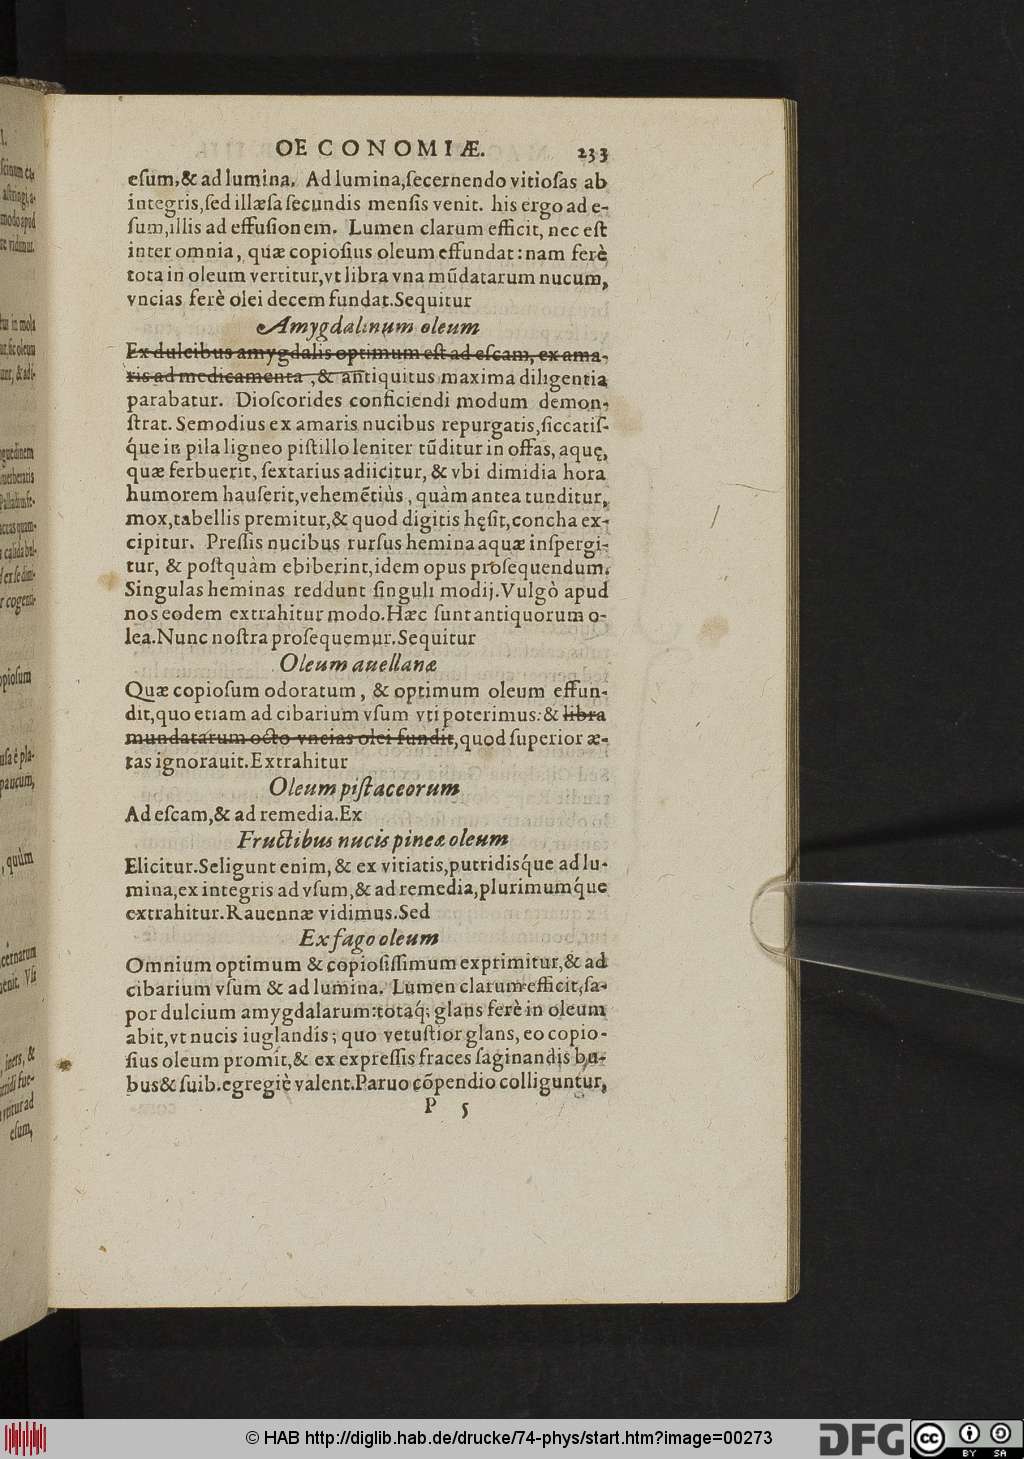 OECONOMIÆ. 233
esum,& ad lumina. Ad lumina,secernendo vitiosas ab
integris,sed illæsa secundis mensis venit. his ergo ad e-
sum,illis ad effusionem. Lumen clarum efficit, nec est
inter omnia, quæ copiosius oleum effundat: nam ferè
tota in oleum vertitur,vt libra vna mũdatarum nucum,
vncias ferè olei decem fundat.Sequitur
Amygdalinum oleum
Ex dulcibus amygdalis optimum est ad escam, ex ama-
ris ad medicamenta ,& antiquitus maxima diligentia
parabatur. Dioscorides conficiendi modum demon-
strat. Semodius ex amaris nucibus repurgatis,siccatis-
q́ue in pila ligneo pistillo leniter tũditur in offas, aquę,
quæ ferbuerit, sextarius adiicitur, & vbi dimidia hora
humorem hauserit,vehemẽtiùs , quàm antea tunditur,
mox,tabellis premitur,& quod digitis hęsit,concha ex-
cipitur. Pressis nucibus rursus hemina aquæ inspergi-
tur, & postquàm ebiberint,idem opus prosequendum.
Singulas heminas reddunt singuli modij.Vulgò apud
nos eodem extrahitur modo.Hæc sunt antiquorum o-
lea.Nunc nostra prosequemur.Sequitur
Oleum auellanæ
Quæ copiosum odoratum , & optimum oleum effun-
dit,quo etiam ad cibarium vsum vti poterimus: & libra
mundatarum octo vncias olei fundit,quod superior æ-
tas ignorauit.Extrahitur
Oleum pistaceorum
Ad escam,& ad remedia.Ex
Fructibus nucis pineæ oleum
Elicitur.Seligunt enim, & ex vitiatis,putridisq́ue ad lu-
mina,ex integris ad vsum,& ad remedia,plurimumq́ue
extrahitur.Rauennæ vidimus.Sed
Ex fago oleum
Omnium optimum & copiosissimum exprimitur,& ad
cibarium vsum & ad lumina. Lumen clarum efficit,sa-
por dulcium amygdalarum:totaq́; glans ferè in oleum
abit,vt nucis iuglandis; quo vetustior glans, eo copio-
sius oleum promit,& ex expressis fraces saginandis bu-
bus& suib.egregiè valent.Paruo cõpendio colliguntur,
P 5
© HAB http://diglib.hab.de/drucke/74-phys/start.htm?image=00273
DFG
cc BY SA